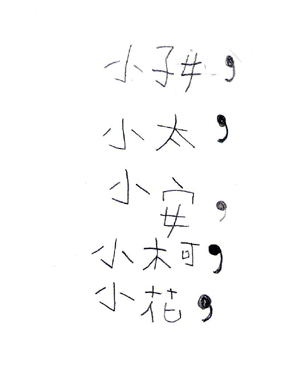 小子女，
小太，
小安，
小柯，
小花，